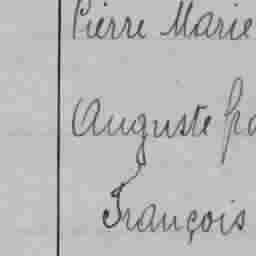 Pierre Marie
Auguste
François